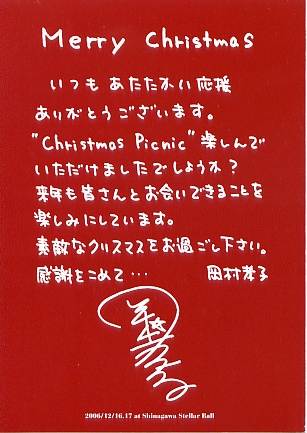 Merry Christmas
いつも あたたかい応援
ありがとうございます。
"Christmas Picnic" 楽しんで
いただけましたでしょうか?
来年も皆さんとお会いできることを
楽しみにしています。
素敵なクリスマスをお過ごし下さい。
感謝をこめて… 岡村孝子
2006/12/16.17 at Shinagawa Stellar Ball